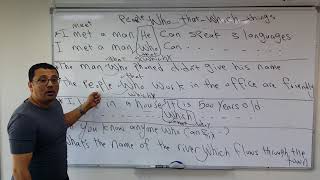 People Who that Which things
meet
I met a man. He Can speak 3 languages
I met a man Who Can
that Which X
The man Who Phoned didn't give his name
The People Who Work in the office are friendly
in a house It is 500 years old
Which
you know anyone Who Can
What's the name of the river Which flows through the town